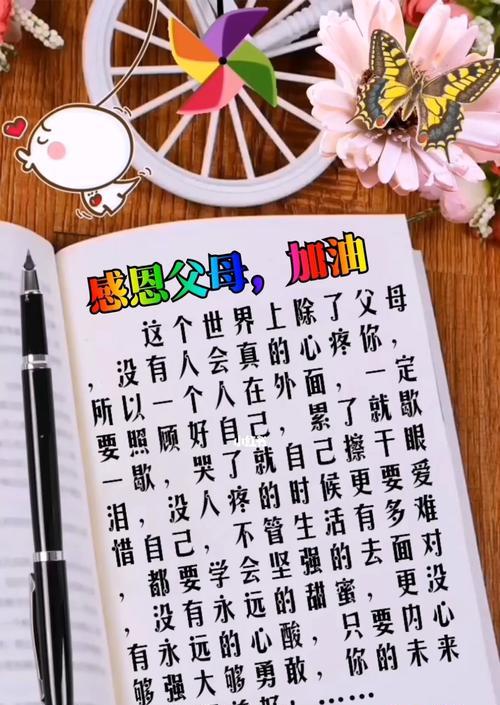 感恩父母，加油
这个世界上除了父母
，没有人会真的心疼你，
所以一个人在外面，一定
要照顾好自己，累了就歇
一歇，哭了就自己擦干眼
泪，没人疼的时候更要爱
惜自己，不管生活有多难
，都要学会坚强的去面对
，没有永远的甜蜜，更没
有永远的心酸，只要内心
够强大够勇敢，你的未来
好！……
小红书